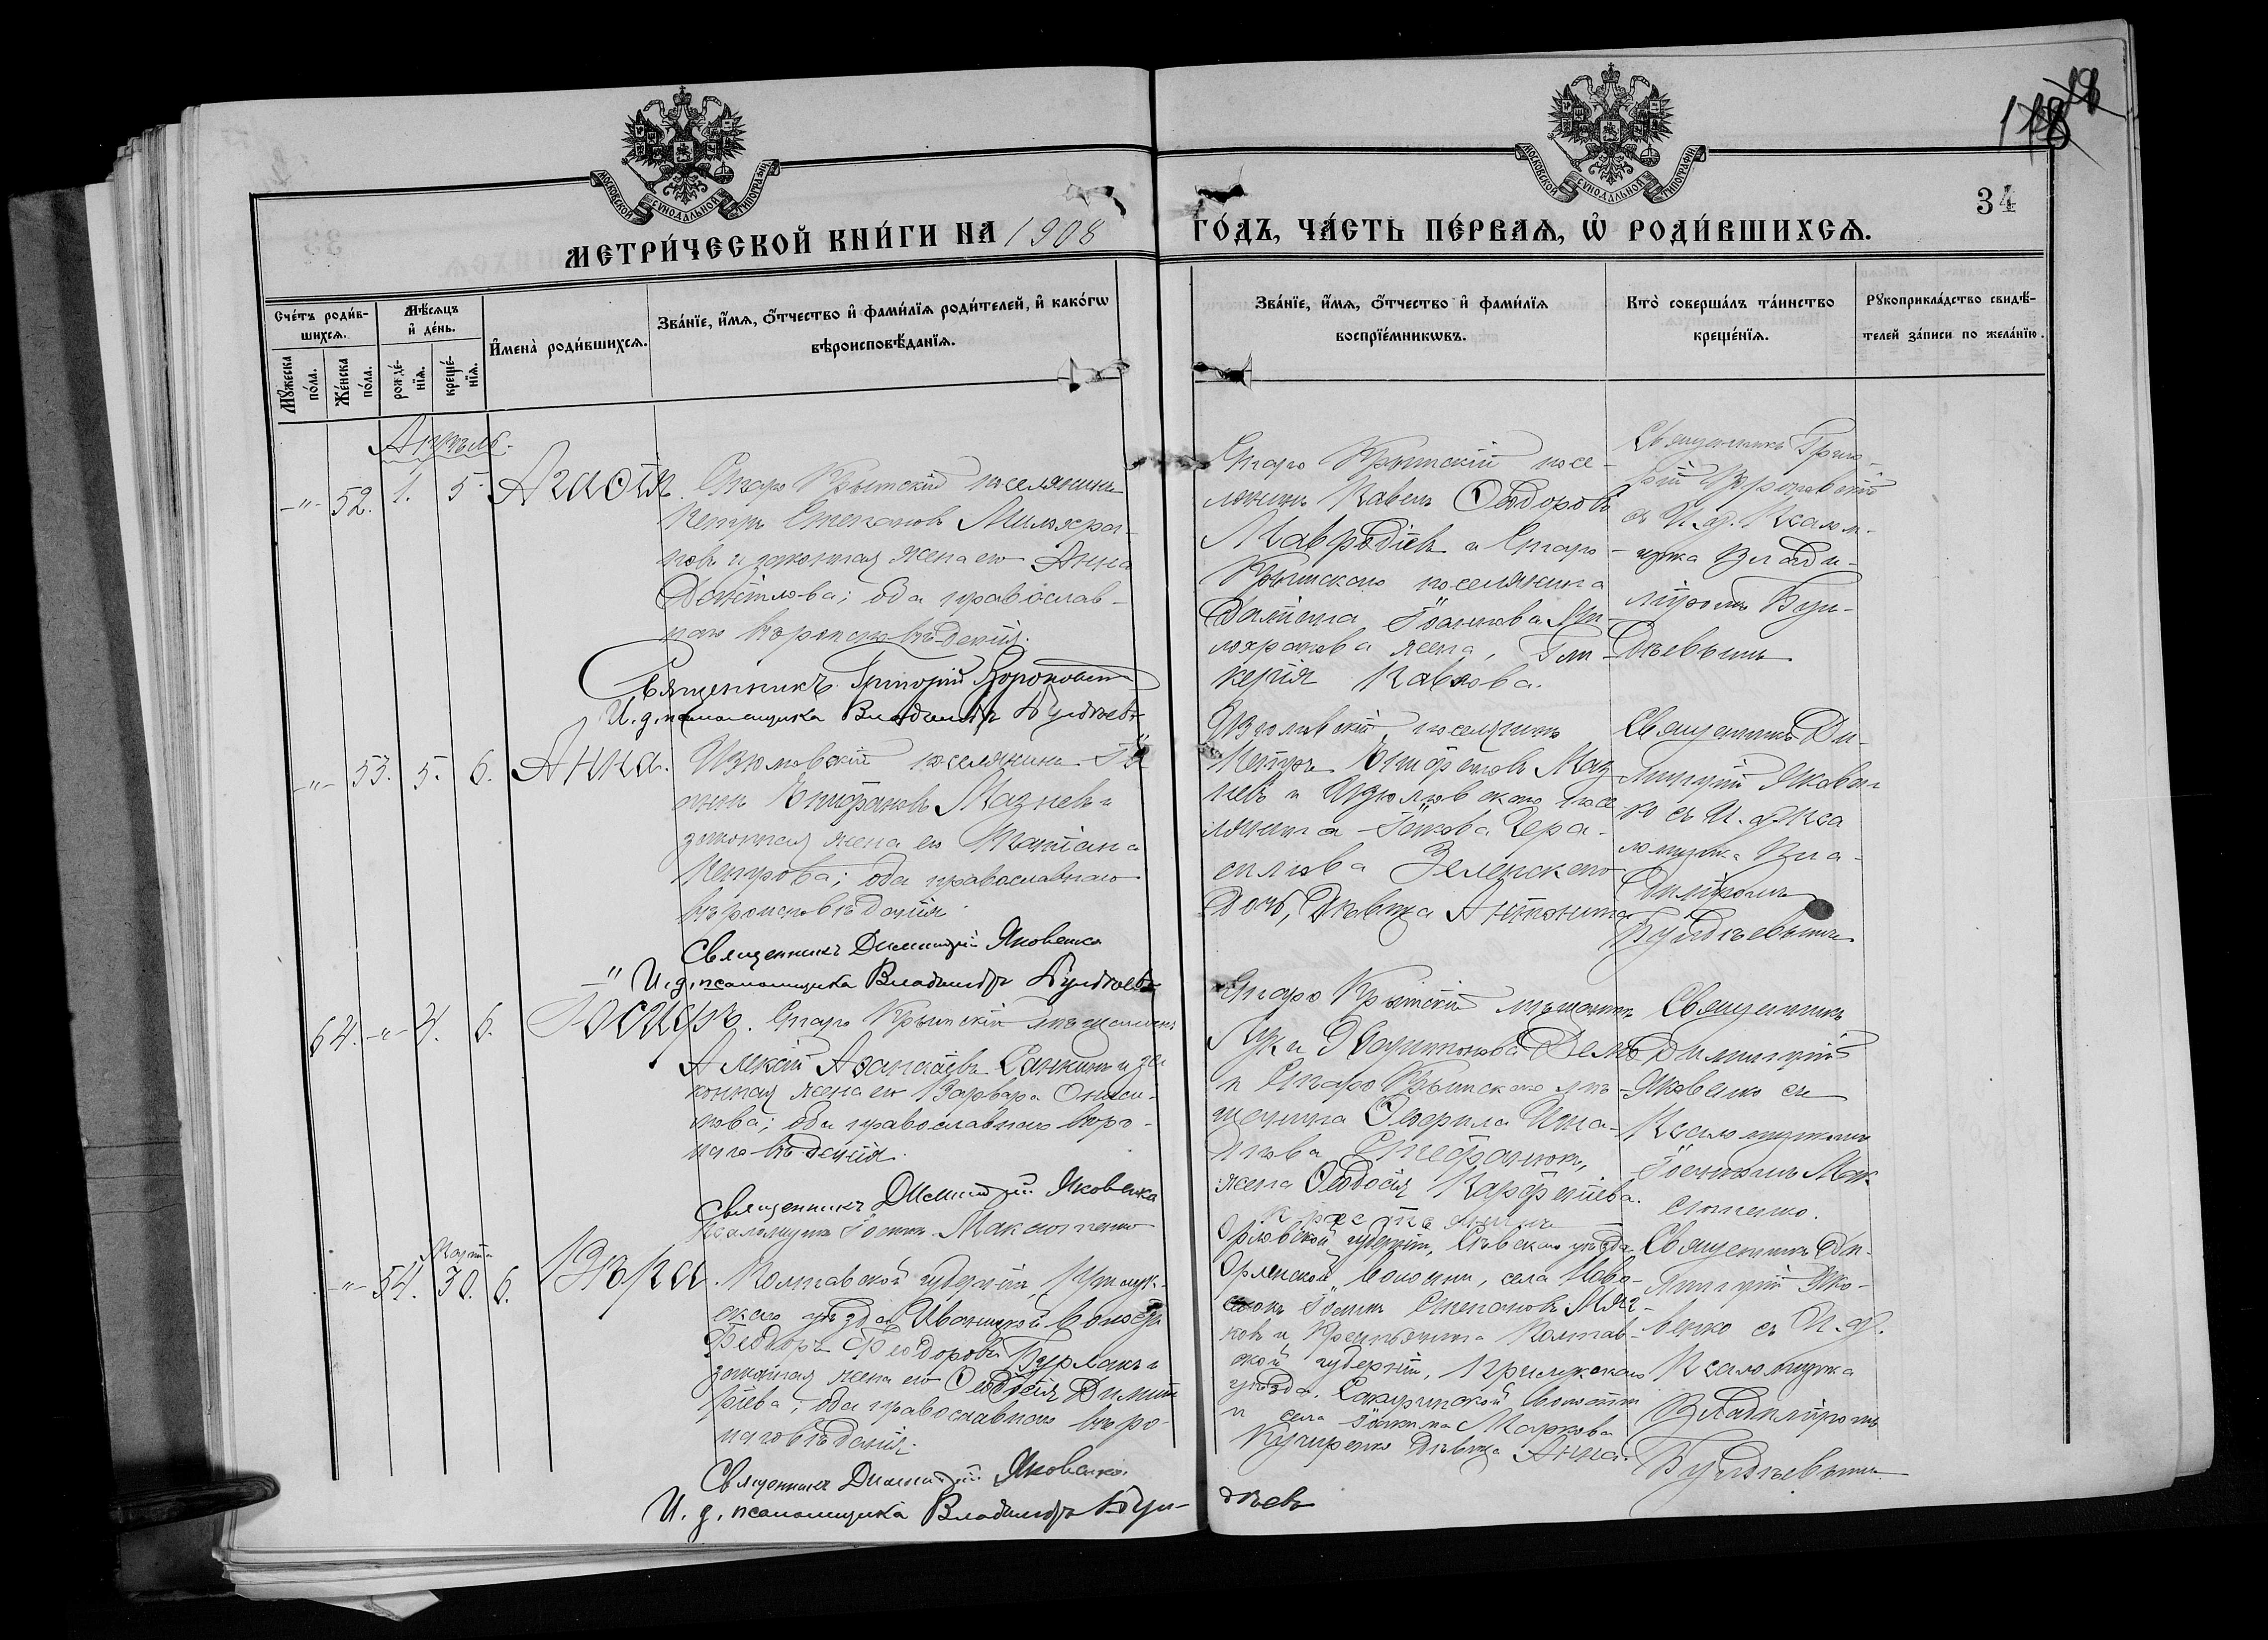 118
34
МОСКОВСКОЙ СУНОДАЛЬНОЙ ТИПОГРАФІИ
МОСКОВСКОЙ СУНОДАЛЬНОЙ ТИПОГРАФІИ
МЕТРИ́ЧЕСКОЙ КНИ́ГИ НА 1908
ГО́ДЪ, ЧА́СТЬ ПЕ́РВАѦ, Ѡ҆ РОДИ́ВШИХСѦ.
Сче́тъ роди́в-
шихсѧ.
Мѣ́сѧцъ
и҆ де́нь.
И҆мена̀ роди́вшихсѧ.
Зва́нїе, и҆́мѧ, ѻ҆́тчество и҆ фами́лїѧ роди́телей, и҆ како́гѡ
вѣроисповѣ́данїѧ.
Мꙋ́жеска
по́ла.
Же́нска
по́ла.
рожде́-
нїѧ.
креще́-
нїѧ.
Зва́нїе, и҆́мѧ, ѻ҆́тчество и҆ фами́лїѧ
воспрїе́мникѡвъ.
Кто̀ соверша́лъ та́инство
креще́нїѧ.
Рꙋкоприкла́дство свидѣ́-
телей за́писи по жела́нїю.
Апрѣль.
-"- 52. 1. 5. Агаѳія. Старо Крымскій поселянинъ
Петръ Степановъ Милохра-
новъ и законная жена его Анна
Даніилова; оба православ-
наго вѣроисповѣданія.
Священникъ Григорій
И. д. псаломщика Владиміръ Булдѣевъ
Старо Крымскій посе-
лянинъ Павелъ Ѳеодоровъ
Мавродіевъ и Старо-
Крымскаго поселянина
Даніила Іоаннова Ми-
лохранова жена, Гли-
керія Павлова.
Священникъ Григо-
рій
съ И. д. Псалом-
щика Влади-
міромъ Бул-
дѣевымъ
-"- 53. 5. 6. Анна. Изюмовскій поселянинъ
Епифановъ Мазневъ и
законная жена его Татіана
Петрова; оба православнаго
вѣроисповѣданія.
Священникъ Димитрій Яковенко
И. д. псаломщика Владиміръ Булдѣевъ
Изюмовскій поселянинъ
Петръ Епифановъ Маз
невъ и Изюмовскаго посе
лянина Іакова Гера-
симова Зеленскаго
дочь, дѣвица Антонина
Священникъ Ди-
митрій Яковен
ко съ И. д. Пса
ломщика Вла-
диміромъ
Булдѣевымъ
64. -"- 4. 6. Іосифъ. Старо Крымскій мѣщанинъ
Алексій Аѳанасіевъ Санкинъ и за
конная жена его Варвара Ониси-
мова; оба православнаго вѣро-
исповѣданія.
Священникъ Димитрій Яковенко
Псаломщикъ Іоаннъ Максименко
Старо Крымскій мѣщанинъ
Лука
и Старо Крымскаго мѣ-
щанина Ѳеофила Игна-
тьева Стефанюк,
жена Ѳеодосія Парфеніева.
Священникъ
Димитрій
Яковенко съ
Псаломщикомъ
Іоанномъ Мак
сименко.
Марта
-"- 54. 30. 6. Вѣра. Полтавской губерніи, Прилук-
скаго уѣзда Иваницкой волости
Ѳеодоръ Ѳеодоровъ Бурлакъ и
законная жена его Ѳеодосія Димит
ріева; оба православнаго вѣро-
исповѣданія.
Священникъ Димитрій Яковенко
И. д. псаломщика Владиміръ Бул-
дѣевъ
крестьянинъ
Орловской губерніи, Сѣвскаго уѣзда
волости, села Ново-
Іоаннъ Степановъ
и Крестьянина Полтав-
ской губерніи, Прилукскаго
уѣзда, волости
и села Іоанна Маркова
Кучеренко дѣвица Анна.
Священникъ Ди-
митрій Яко-
венко съ И. д.
Псаломщика
Владиміромъ
Булдѣевымъ